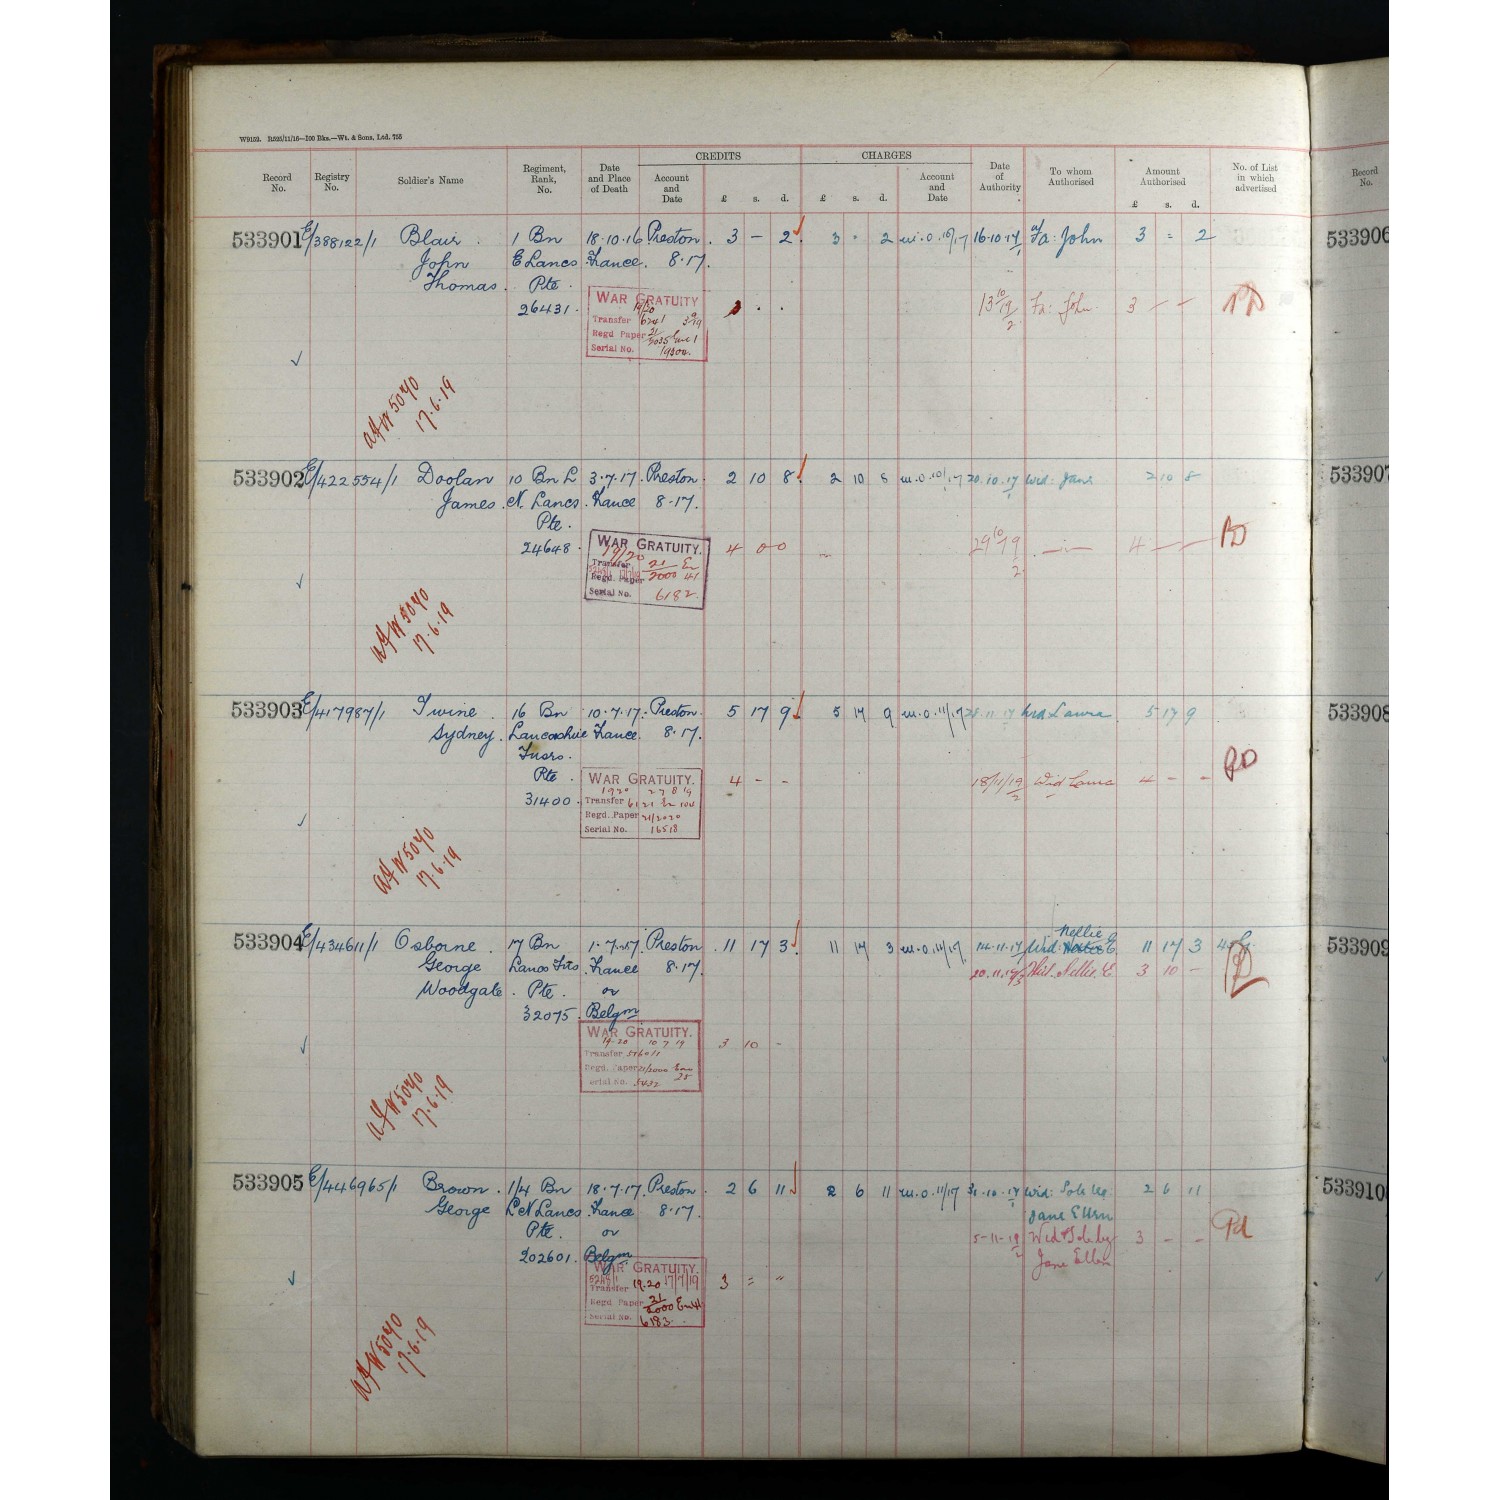 W9152. R525/11/16—100 Bks.—Wt. & Sons, Ltd. 755
CREDITS CHARGES
Record No. Registry No. Soldier's Name Regiment, Rank, No. Date and Place of Death Account and Date £ s. d. £ s. d. Account and Date Date of Authority To whom Authorised Amount Authorised £ s. d. No. of List in which advertised Record No.
533901 E/388122/1 Blair. 1 Bn 18.10.16 Preston. 3 – 2 3 " 2 m.o. 10/17 16.10.17 Fa: John 3 = 2 533906
John E Lancs France. 8.17.
Thomas. Pte.
26431.
WAR GRATUITY
19/20
Transfer
Regd Paper 21/2035
Serial No.
Fa: John. 3 – –
AF W5070
17.6.19
533902 E/422554/1 Doolan 10 Bn L 3.7.17. Preston. 2 10 8 2 10 8 m.o. 10/17 20.10.17 Wid: Jane 2 10 8 533907
James. N. Lancs. France 8.17.
Pte.
24648.
WAR GRATUITY.
19/20
Transfer 21/2000
Regd. Paper 41
Serial No. 6182
4 0 0 4 – –
AF W5070
17.6.19
533903 E/417987/1 Irvine. 16 Bn 10.7.17. Preston. 5 17 9 5 17 9 m.o. 11/17 Wid Laura 5 17 9 533908
Sydney. Lancashire France. 8.17.
Fusrs.
Pte.
31400.
WAR GRATUITY.
19 20 27 8 19
Transfer
Regd. Paper 21/2020
Serial No. 16518
4 – – 18/11/19 Wid Laura 4 – –
AF W5070
17.6.19
533904 E/434611/1 Osborne. 17 Bn 1.7.17 Preston 11 17 3 11 17 3 m.o. 11/17. 14.11.17 Wid: Nellie E 11 17 3 533909
George Lancs Frs. France 8.17. Wid. Nellie. E 3 10 –
Woodgate. Pte. or
32075. Belgm
WAR GRATUITY.
19-20 10 7 19
Transfer
Regd. Paper 21/2000
Serial No. 5432
3 10 –
AF W5070
17.6.19
533905 E/446965/1 Brown. 1/4 Bn 18.7.17. Preston. 2 6 11 2 6 11 m.o. 11/17 31.10.17 Wid: Sole Leg 2 6 11 533910
George L N Lancs France 8.17. Jane Ellen
Pte. or 5-11-19 Wid & Sole Leg 3 – –
202601. Belgm Jane Ellen
WAR GRATUITY.
Transfer 19.20 17/7/19
Regd Paper 21/2000 En 41
Serial No. 6183
3 = "
AF W5070
17.6.19